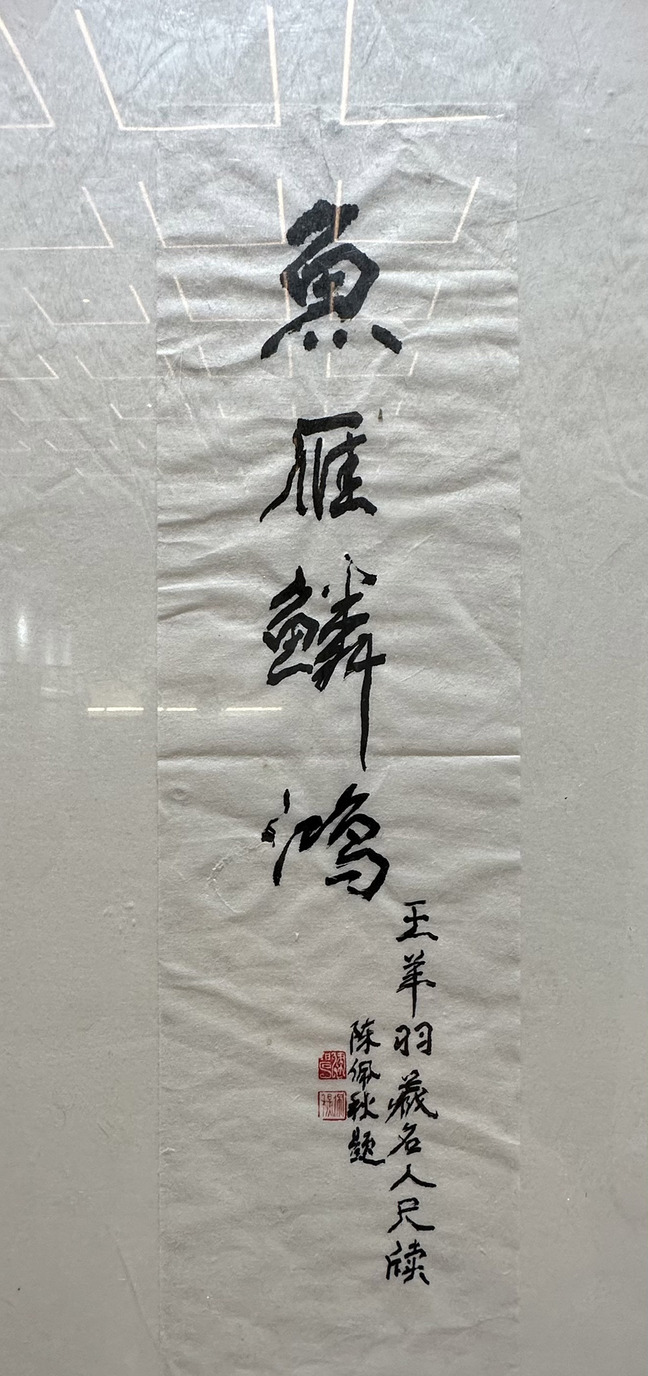 魚雁鱗鴻
玉羊羽藏名人尺牍
陈佩秋题